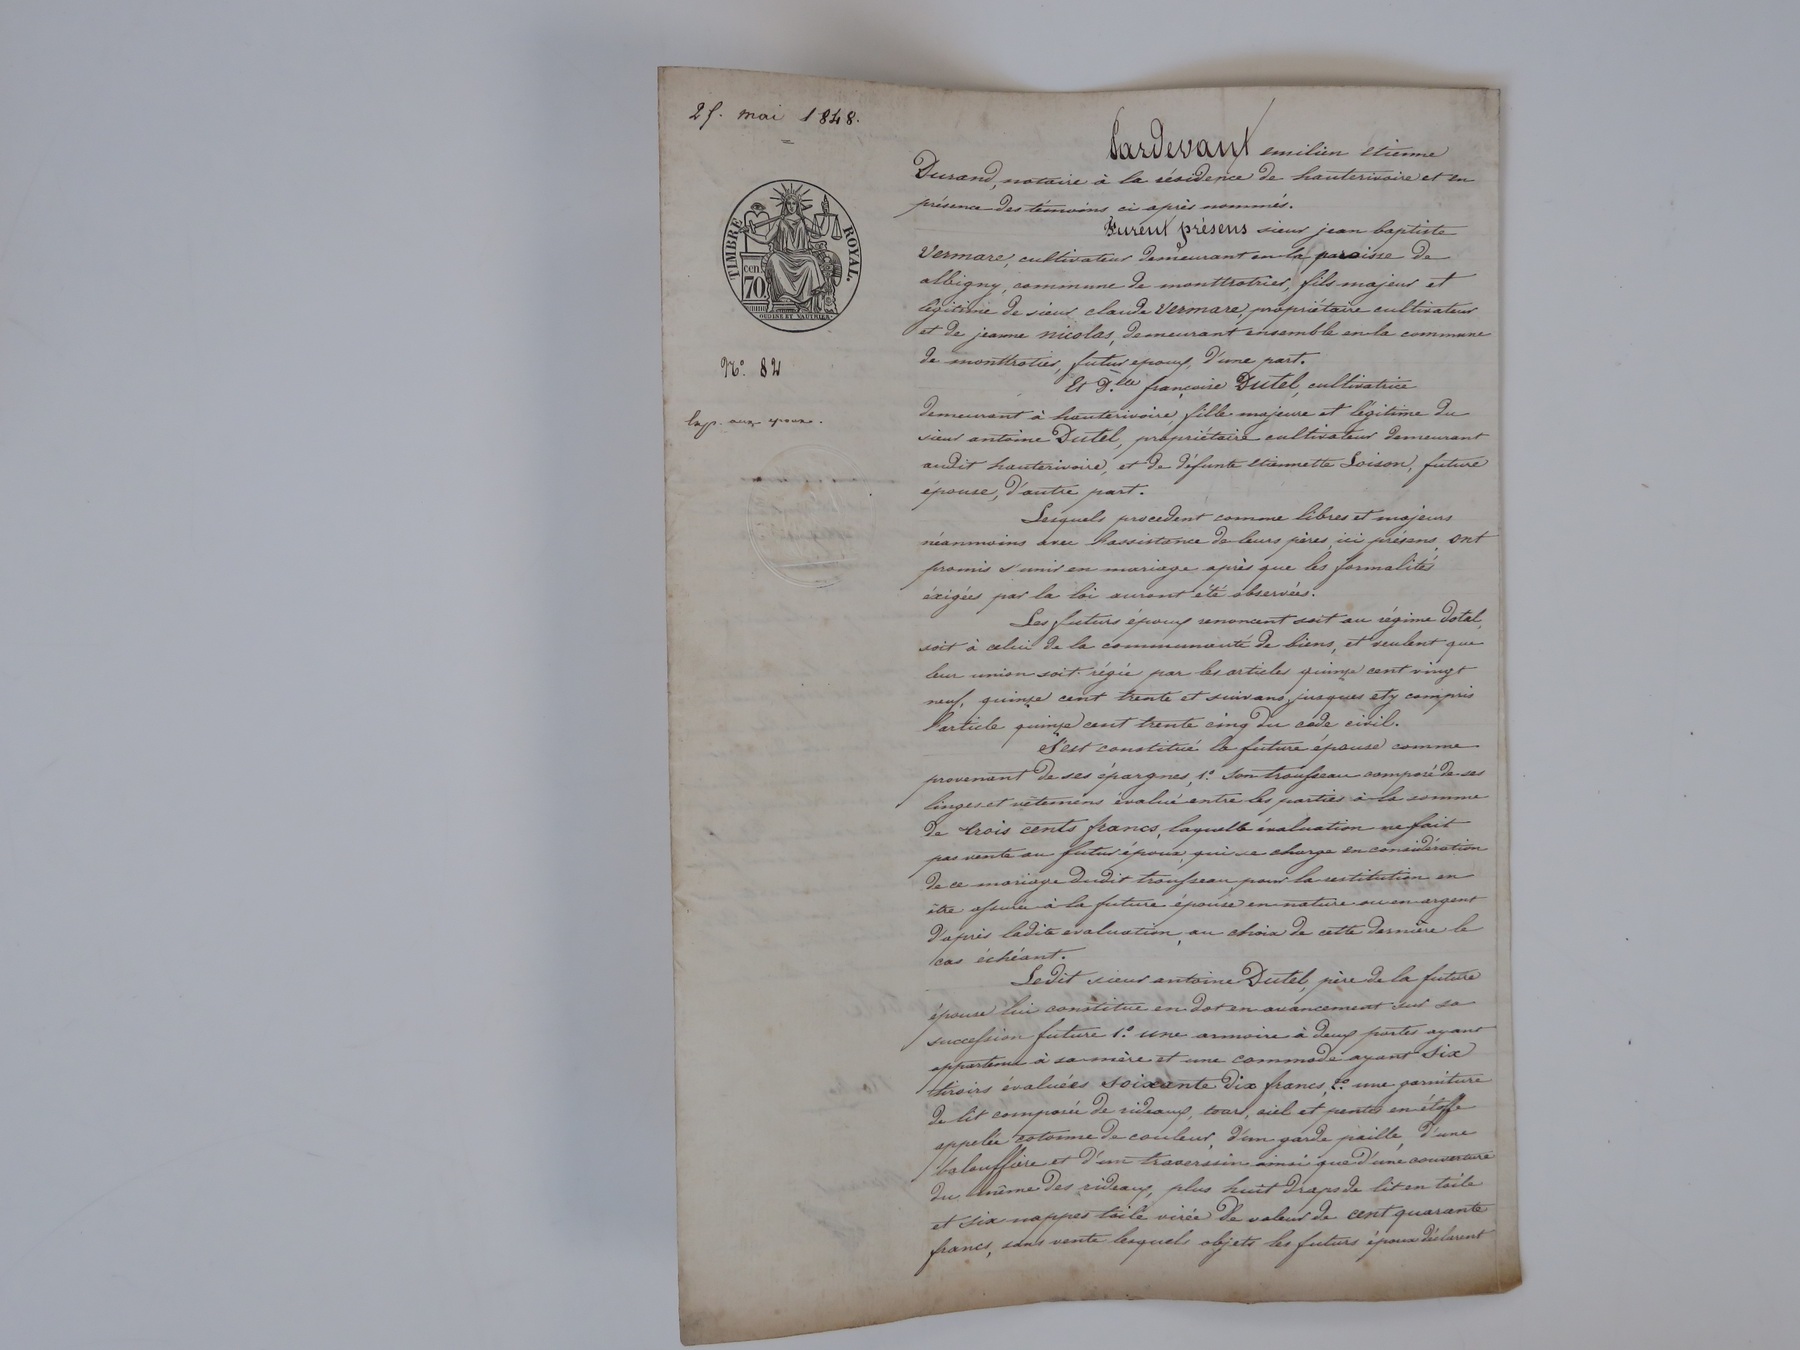 25. mai 1848.
TIMBRE ROYAL.
cen. 70.
N.° 82
Exp. aux époux.
Pardevant emilien etienne
Durand, notaire à la résidence de hauterivoire et en
présence des témoins ci après nommés.
Furent présens sieur jean baptiste
Vermare, cultivateur demeurant en la paroisse de
albigny, commune de monttrotries, fils majeur et
légitime de sieur claude Vermare, propriétaire cultivateur
et de jeanne nicolas, demeurant ensemble en la commune
de monttroties, futur epoux, d'une part.
Et D.lle françoise Dutel, cultivatrice
demeurant à hauterivoire, fille majeure et légitime du
sieur antoine Dutel, propriétaire cultivateur demeurant
audit hauterivoire, et de défunte etiennette Loison, future
épouse, d'autre part.
Lesquels procedent comme libres et majeurs
néanmoins avec l'assistance de leurs pères, ici présens, ont
promis s'unir en mariage après que les formalités
éxigées par la loi auront été observées.
Les futurs époux renoncent soit au régime dotal,
soit à celui de la communauté de biens, et veulent que
leur union soit régie par les articles quinze cent vingt
neuf, quinze cent trente et suivans, jusques et y compris
l'article quinze cent trente cinq du code civil.
S'est constitué la future épouse comme
provenant de ses épargnes, 1.° son trousseau composé de ses
linges et vêtemens évalué entre les parties à la somme
de trois cents francs, laquelle évaluation ne fait
pas vente au futur époux, qui se charge en considération
de ce mariage dudit trousseau, pour la restitution en
être assurée à la future épouse en nature ou en argent
d'après ladite evaluation, au choix de cette dernière le
cas échéant.
Ledit sieur antoine Dutel, père de la future
épouse lui constitue en dot en avancement sur sa
succession future 1.° une armoire à deux portes ayant
appartenu à sa mère et une commode ayant six
tiroirs évaluées soixante dix francs, 2.° une garniture
de lit composée de rideaux, tour, ciel et pentes en étoffe
appelée cotonne de couleur, d'un garde paille, d'une
balouffière et d'un traversin ainsi que d'une couverture
du même des rideaux, plus huit draps de lit en toile
et six nappes toile virée de valeur de cent quarante
francs, sans vente lesquels objets les futurs époux déclarent